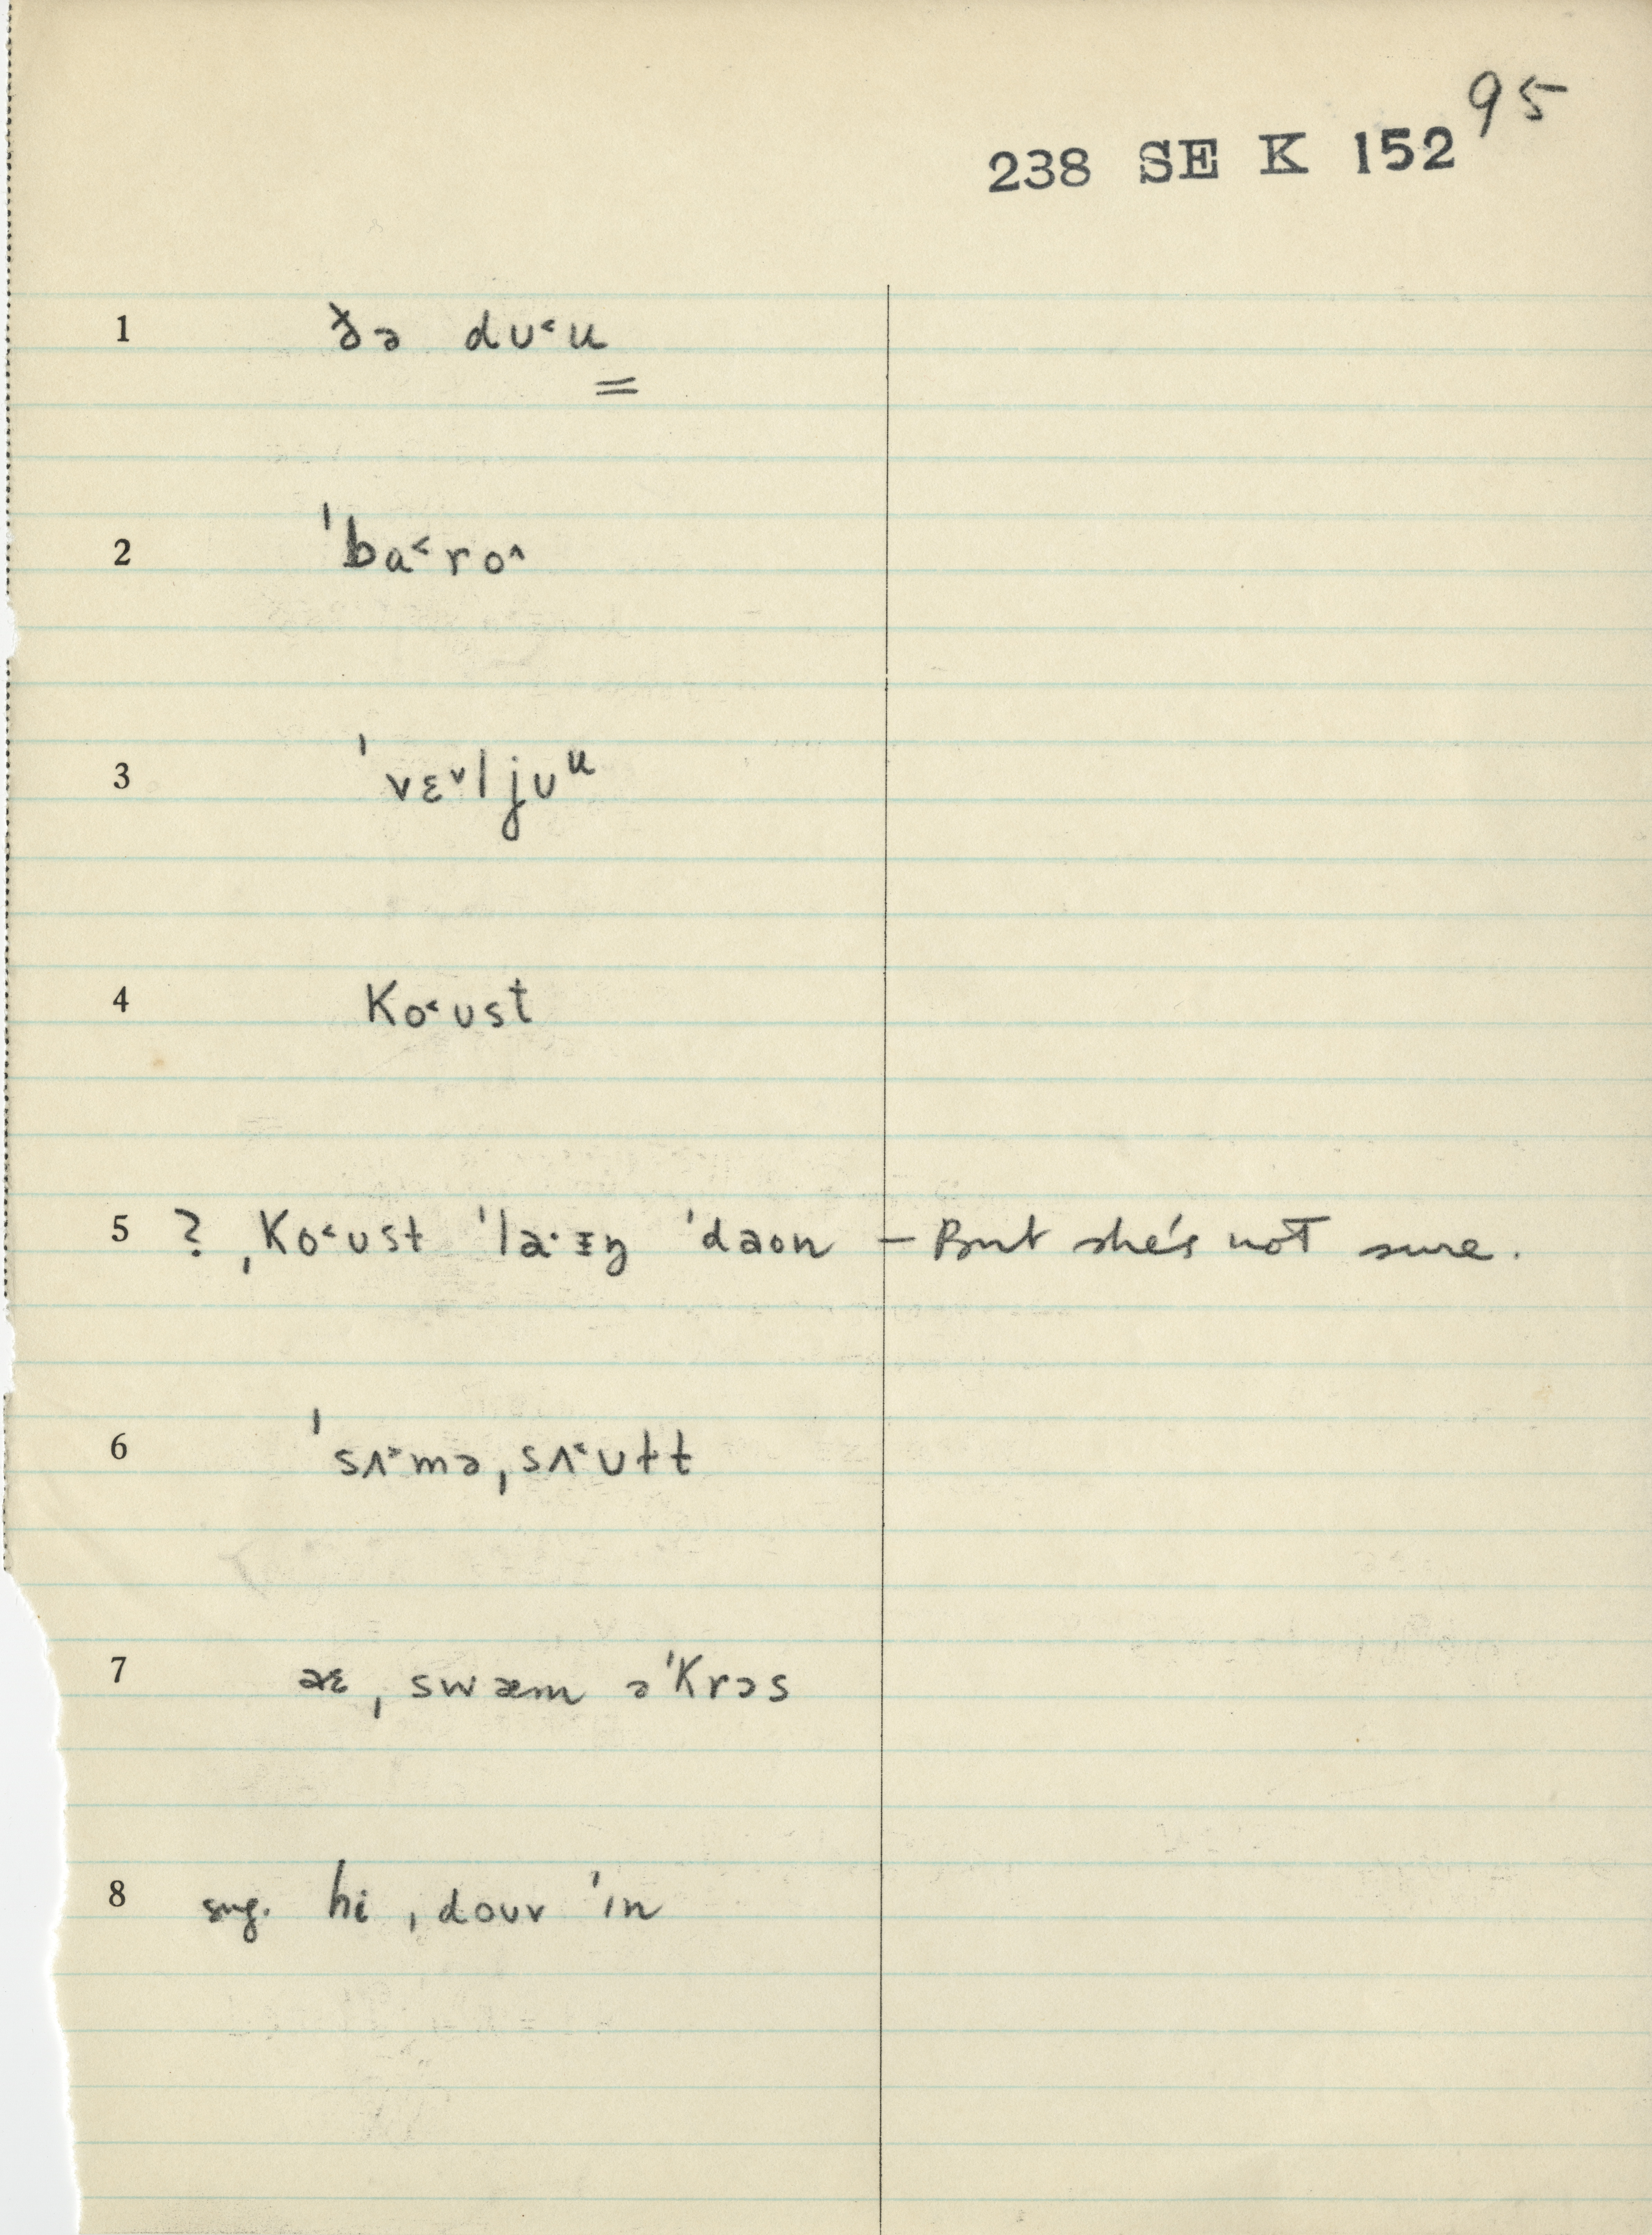 95
238 SE K 152
1 ðə dʊ˂u
2 ˈbɑ˂ro˄
3 ˈvɛ˅ljʊᵘ
4 Ko˂ust
5 ? ˌKo˂ʊst ˈla·ɪŋ ˈdaon — But she's not sure.
6 ˈsʌ˃məˌsʌ˂ʊtt
7 æɛ ˌswæm əˈKrɔs
8 sug. hi ˌdouv ˈɪn